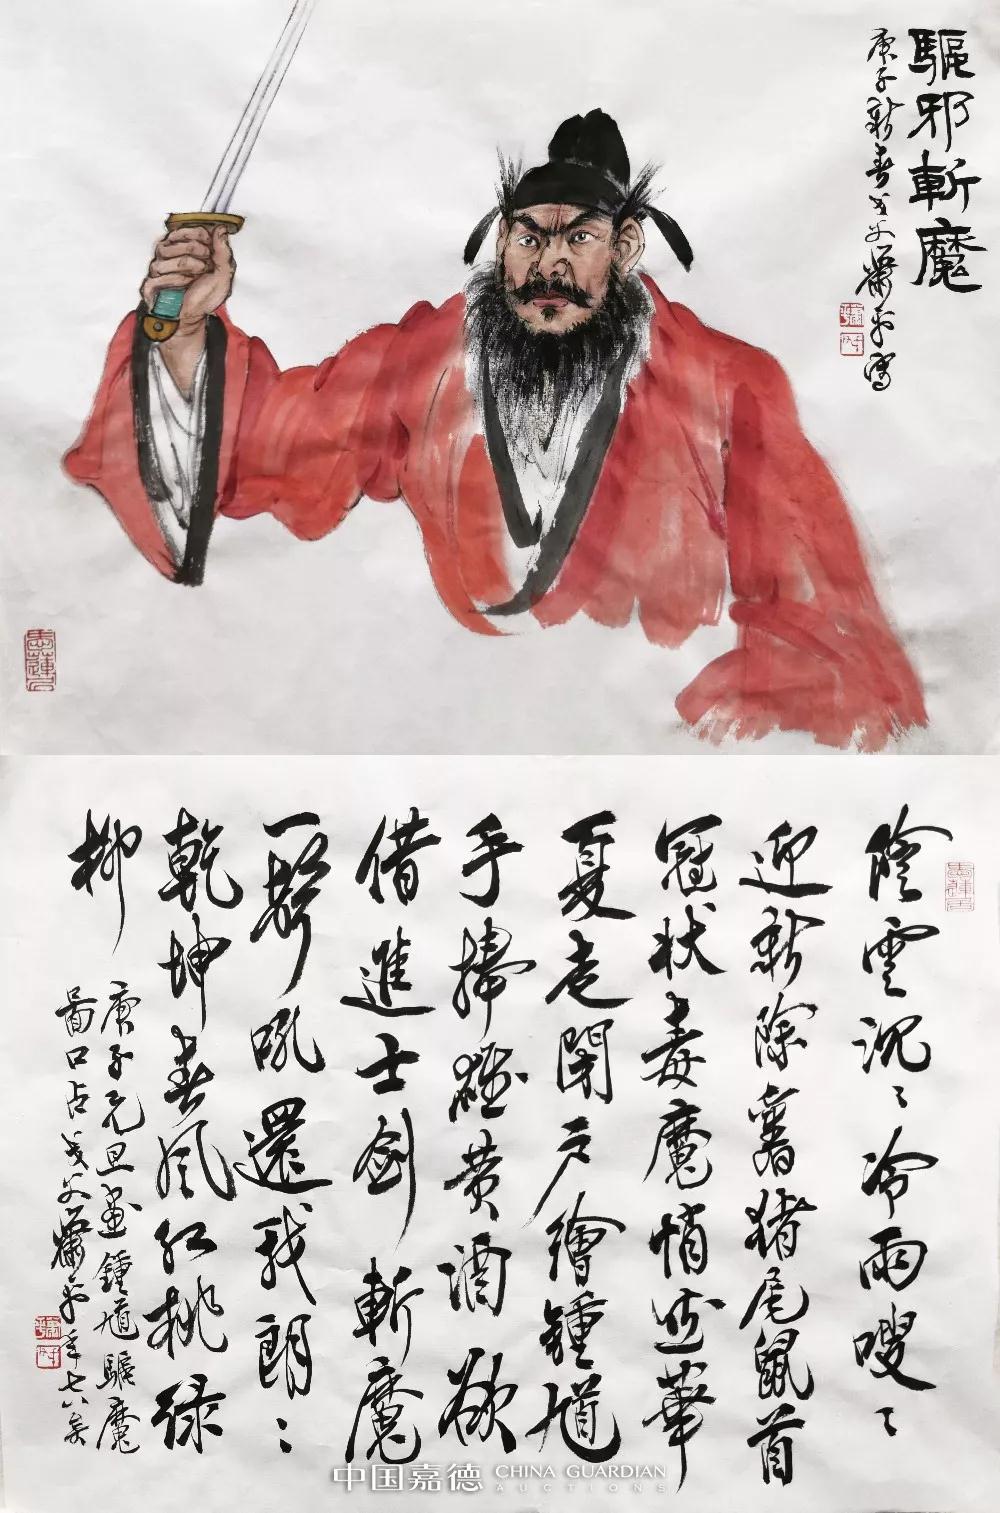 驅邪斬魔
庚子新春戈父蕭平寫
陰雲沉〻冷雨嗖〻
迎新除舊猪尾鼠首
冠狀毒魔悄近華
夏走閉户繪鍾馗
手捧雄黄酒欲
借進士劍斬魔
一聲吼還我朗〻
乾坤春风红桃绿
柳
庚子元旦畫鍾馗驅魔
畱口占戈父蕭平年七八矣
中国嘉德 CHINA GUARDIAN
AUCTIONS